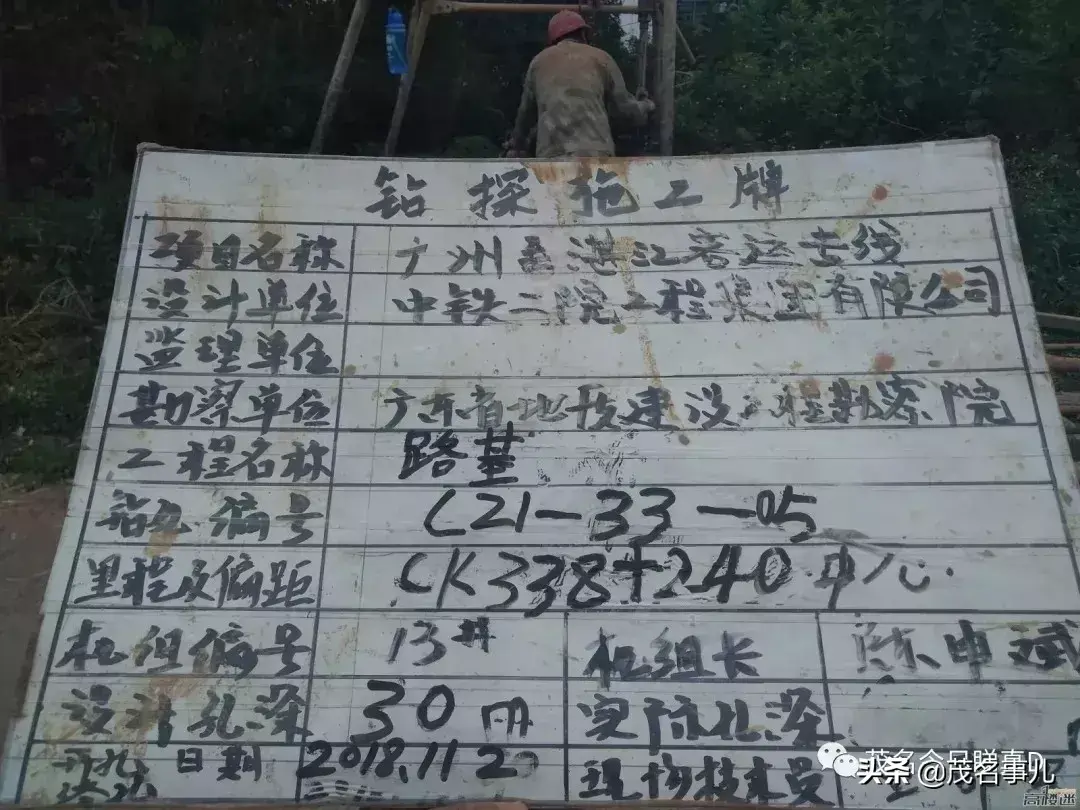 钻探施工牌
项目名称 广州至湛江客运专线
设计单位 中铁二院工程集团有限公司
监理单位
勘察单位 广东省地质建设工程勘察院
工程名称 路基
钻孔编号 C21-33-05
里程及偏距 CK338+240.中心.
机组编号 13# 机组长 陈申斌
设计孔深 30m 实际孔深
开孔日期 2018.11.20 现场技术员
头条 @茂名事儿
高楼迷